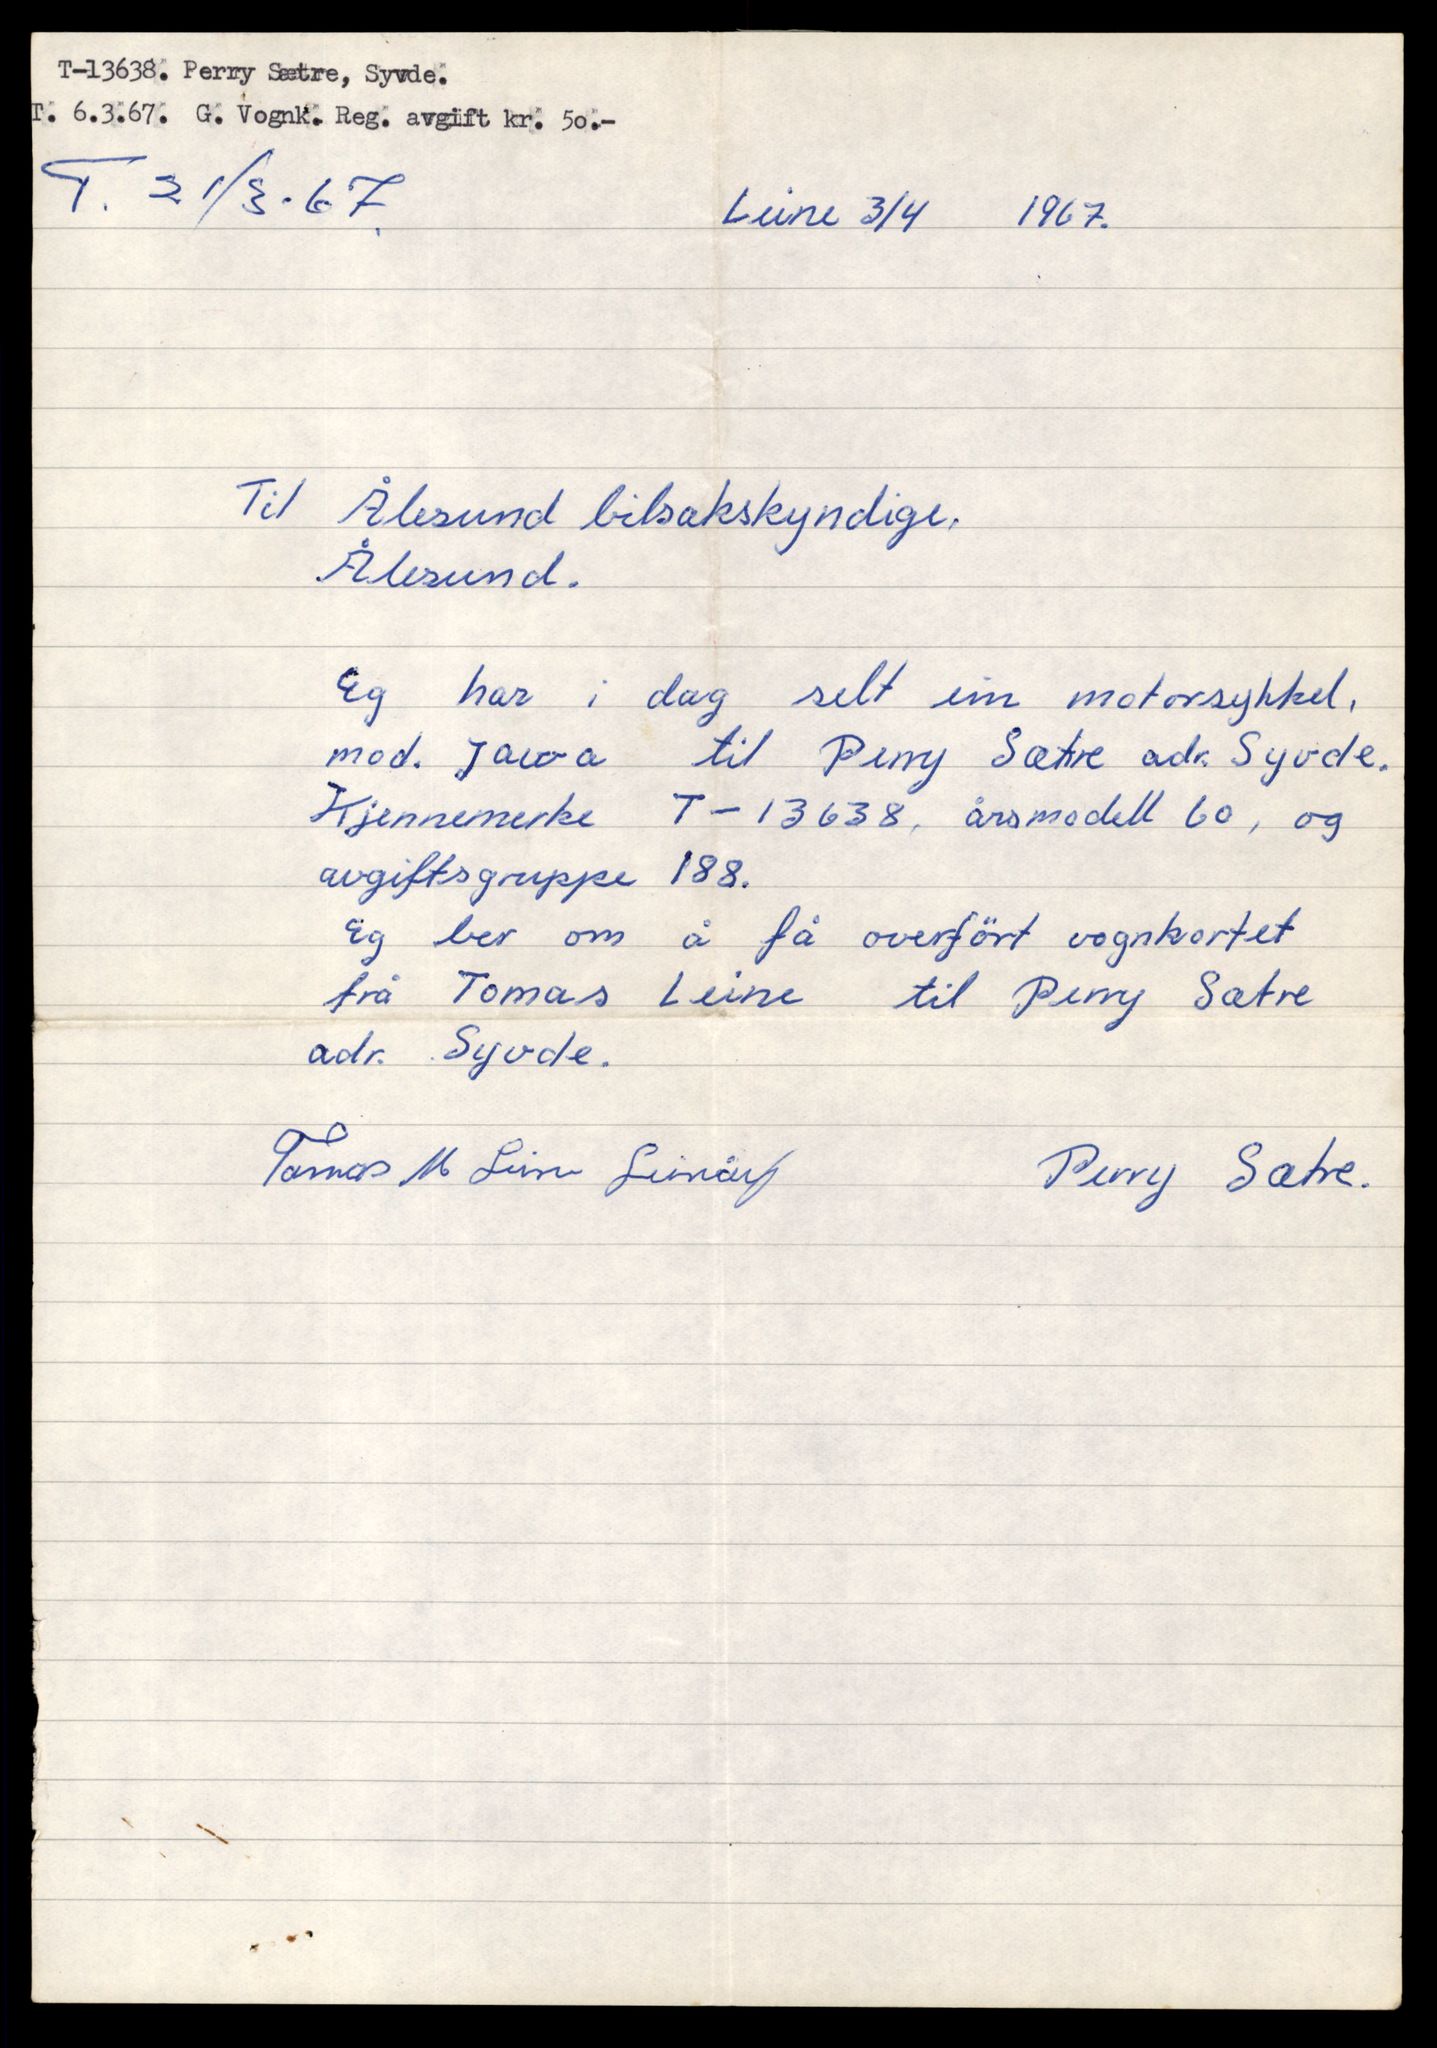 T-13638. Perry Sætre, Syvde.
T. 6.3.67. G. Vognk. Reg. avgift kr. 50.-
T. 31/3.67.
Leine 3/4 1967.
Til Ålesund bilsakskyndige.
Ålesund.
Eg har i dag selt ein motorsykkel,
mod. Jawa til Perry Sætre adr. Syvde.
Kjennemerke T-13638, årsmodell 60, og
avgiftsgruppe 188.
Eg ber om å få overfört vognkortet
frå Tomas Leine til Perry Sætre
adr. Syvde.
Tomas M Leine Perry Sætre.